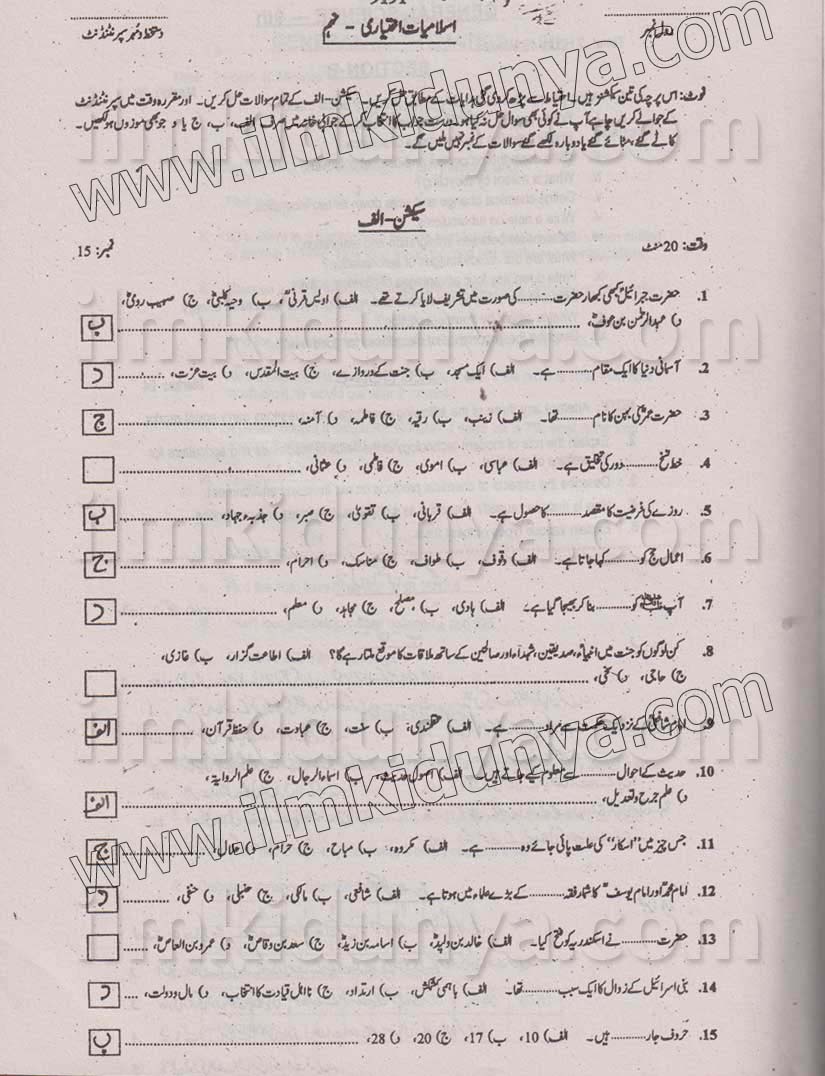 اسلامیات اختیاری - نہم
رول نمبر
دستخط و مہر سپرنٹنڈنٹ
نوٹ: اس پرچہ کی تین سیکشنز ہیں۔ احتیاط سے پڑھ کر دی گئی ہدایات کے مطابق حل کریں۔ سیکشن-الف کے تمام سوالات حل کریں۔ اور مقررہ وقت میں سپرنٹنڈنٹ
کے حوالے کریں چاہے آپ نے کوئی بھی سوال حل نہ کیا ہو۔ درست جواب کا انتخاب کر کے جوابی خانہ میں صرف الف، ب، ج یا د جو بھی موزوں ہو لکھیں۔
کاٹے گئے، مٹائے گئے یا دوبارہ لکھے گئے سوالات کے نمبر نہیں ملیں گے۔
www.ilmkidunya.com
سیکشن-الف
وقت: 20 منٹ
نمبر: 15
1. حضرت جبرائیلؑ کبھی کبھار حضرت .......... کی صورت میں تشریف لایا کرتے تھے۔ الف) اویس قرنیؓ، ب) وحیہ کلبیؓ، ج) صہیب رومیؓ،
د) عبدالرحمٰن بن عوفؓ، .......... ب
ilmkidunya.com
2. آسمانی دنیا کا ایک مقام .......... ہے۔ الف) ایک مسجد، ب) جنت کے دروازے، ج) بیت المقدس، د) بیت عزت، .......... د
3. حضرت عمرؓ کی بہن کا نام .......... تھا۔ الف) زینب، ب) رقیہ، ج) فاطمہ، د) آمنہ، .......... ج
4. خط نسخ .......... دور کی تخلیق ہے۔ الف) عباسی، ب) اموی، ج) فاطمی، د) عثمانی، ..........
5. روزے کی فرضیت کا مقصد .......... کا حصول ہے۔ الف) قربانی، ب) تقویٰ، ج) صبر، د) جذبہ و جہاد، .......... ب
ilmkidunya.com
6. اعمال حج کو .......... کہا جاتا ہے۔ الف) وقوف، ب) طواف، ج) مناسک، د) احرام، .......... ج
7. آپ ﷺ کو .......... بنا کر بھیجا گیا ہے۔ الف) ہادی، ب) مصلح، ج) مجاہد، د) معلم، .......... د
8. کن لوگوں کو جنت میں انبیاء، صدیقین، شہداء اور صالحین کے ساتھ ملاقات کا موقع ملتا رہے گا؟ الف) اطاعت گزار، ب) غازی،
ج) حاجی، د) سخی، ..........
ilmkidunya.com
9. امام شافعیؒ کے نزدیک حکمت سے مراد .......... ہے۔ الف) عقلمندی، ب) سنت، ج) عبادت، د) حفظ قرآن، .......... الف
10. حدیث کے احوال .......... سے معلوم کیے جاتے ہیں۔ الف) اصول حدیث، ب) اسماء الرجال، ج) علم الروایۃ،
د) علم جرح و تعدیل، .......... الف
www.ilmkidunya.com
11. جس چیز میں "اسکار" کی علت پائی جائے وہ .......... ہے۔ الف) مکروہ، ب) مباح، ج) حرام، د) حلال، .......... ج
12. امام محمدؒ اور امام یوسفؒ کا شمار فقہ .......... کے بڑے علماء میں ہوتا ہے۔ الف) شافعی، ب) مالکی، ج) حنبلی، د) حنفی، .......... د
ilmkidunya.com
13. حضرت .......... نے اسکندریہ کو فتح کیا۔ الف) خالد بن ولیدؓ، ب) اسامہ بن زیدؓ، ج) سعد بن وقاصؓ، د) عمرو بن العاصؓ، ..........
14. بنی اسرائیل کے زوال کا ایک سبب .......... تھا۔ الف) باہمی کشمکش، ب) ارتداد، ج) نااہل قیادت کا انتخاب، د) مال و دولت، .... د
15. حروف جار .......... ہیں۔ الف) 10، ب) 17، ج) 20، د) 28، .......... ب